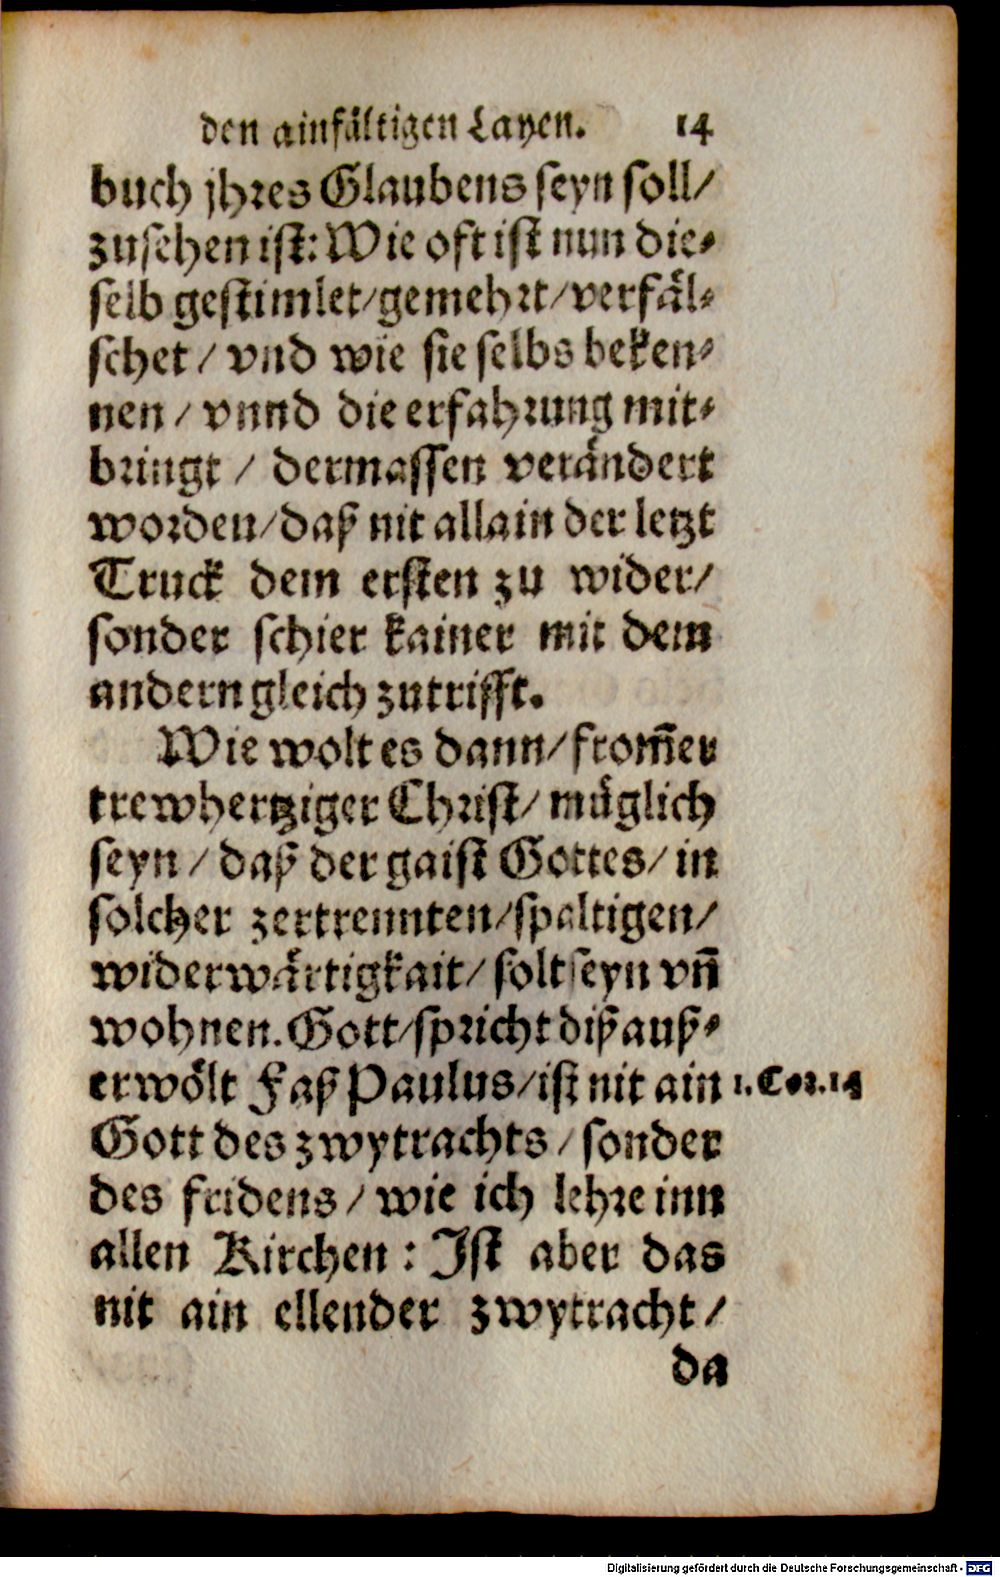 den ainfältigen Layen. 14
buch jhres Glaubens seyn soll/
zusehen ist: Wie oft ist nun die⸗
selb gestimlet/gemehrt/verfäl⸗
schet / vnd wie sie selbs beken⸗
nen / vnnd die erfahrung mit⸗
bringt / dermassen verändert
worden/daß nit allain der letzt
Truck dem ersten zu wider/
sonder schier kainer mit dem
andern gleich zutrifft.
Wie wolt es dann/from̃er
trewhertziger Christ/ müglich
seyn / daß der gaist Gottes/ in
solcher zertrennten/spaltigen/
widerwärtigkait/ solt seyn vñ
wohnen. Gott/spricht diß auß⸗
erwölt Faß Paulus/ist nit ain
1. Cor. 14
Gott des zwytrachts / sonder
des fridens / wie ich lehre inn
allen Kirchen : Ist aber das
nit ain ellender zwytracht /
da
Digitalisierung gefördert durch die Deutsche Forschungsgemeinschaft - DFG